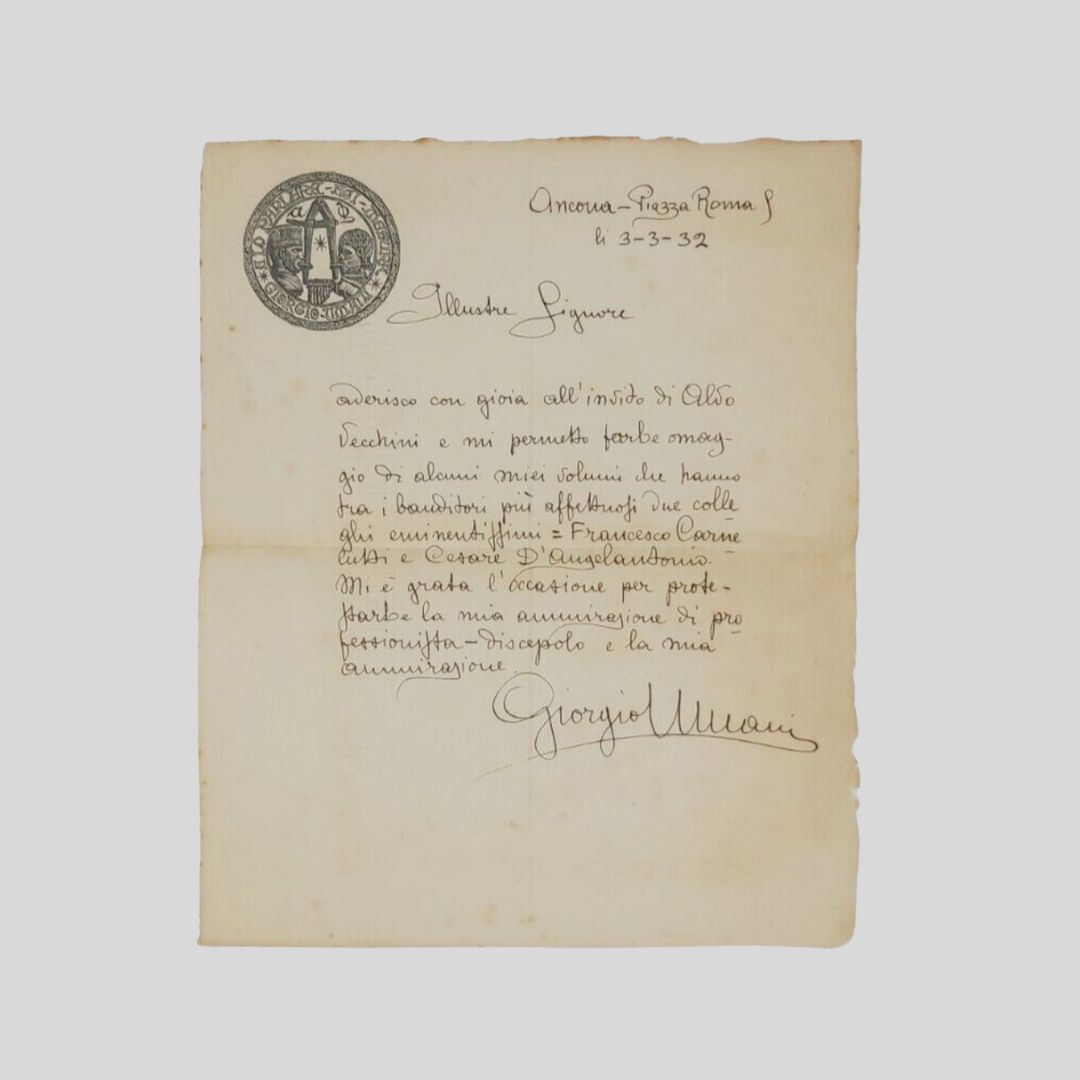 GIORGIO UMANI
Ancona – Piazza Roma
li 3-3-32
Illustre Signore
aderisco con gioia all'invito di Aldo
Vecchini e mi permetto farLe omag-
gio di alcuni miei volumi che hanno
tra i banditori più affettuosi due colle
ghi eminentissimi = Francesco Carne
lutti e Cesare D'Angelantonio.
Mi è grata l'occasione per prote-
starLe la mia ammirazione di pro
fessionista – discepolo e la mia
ammirazione.
Giorgio Umani